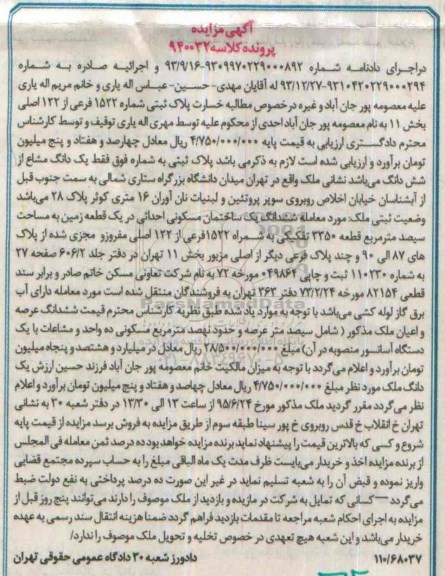 آگهی مزایده
پرونده کلاسه ۹۴۰۰۳۲
دراجرای دادنامه شماره ۹۳۰۹۹۷۰۲۲۹۰۰۰۸۹۲-۹۳/۹/۱۶ و اجرائیه صادره به شماره
۹۳۱۰۴۲۰۲۲۹۰۰۰۲۹۴-۹۳/۱۲/۲۷ له آقایان مهدی- حسین- عباس اله یاری و خانم مریم اله یاری
علیه معصومه پور جان آباد و غیره درخصوص مطالبه خسارت پلاک ثبتی شماره ۱۵۲۲ فرعی از ۱۲۲ اصلی
بخش ۱۱ به نام معصومه پور جان آباد احدی از محکوم علیه توسط مهری اله یاری توقیف و توسط کارشناس
محترم دادگستری ارزیابی به قیمت پایه ۴/۷۵۰/۰۰۰/۰۰۰ ریال معادل چهارصد و هفتاد و پنج میلیون
تومان برآورد و ارزیابی شده است لازم به ذکرمی باشد پلاک ثبتی به شماره فوق فقط یک دانگ مشاع از
شش دانگ می‌باشد نشانی ملک واقع در تهران میدان دانشگاه بزرگراه ستاری شمالی به سمت جنوب قبل
از آبشناسان خیابان اخلاص روبروی سوپر پروتئین و لبنیات نان آوران ۱۶ متری کوثر پلاک ۲۸ می‌باشد
وضعیت ثبتی ملک مورد معامله ششدانگ یک ساختمان مسکونی احداثی در یک قطعه زمین به مساحت
سیصد مترمربع قطعه ۳۳۵۰ تفکیکی به شماره ۱۵۲۲ فرعی از ۱۲۲ اصلی مفروز و مجزی شده از پلاک
های ۸۷ الی ۹۰ و چند پلاک فرعی دیگر از اصلی مزبور بخش ۱۱ تهران در دفتر جلد ۶۰۶/۲ صفحه ۲۷
به شماره ۱۱۰۲۳۰ ثبت و چاپی ۰۴۹۸۶۴ مورخه ۷۲ به نام شرکت تعاونی مسکن خاتم صادر و برابر سند
قطعی ۸۲۱۵۴ مورخه ۷۳/۲/۲۴ دفتر ۳۶۳ تهران به فروشندگان منتقل شده است مورد معامله دارای آب
برق گاز لوله کشی می‌باشد با توجه به موارد یاد شده طبق نظریه کارشناس محترم قیمت ششدانگ عرصه
و اعیان ملک مذکور ( شامل سیصد متر عرصه و حدود نهصد مترمربع مسکونی ده واحد و مشاعات با یک
دستگاه آسانسور منصوبه در آن) مبلغ ۲۸/۵۰۰/۰۰۰/۰۰۰ ریال معادل دو میلیارد و هشتصد و پنجاه میلیون
تومان برآورد و اعلام می‌گردد با توجه به میزان مالکیت خانم معصومه پور جان آباد فرزند حسین ارزش یک
دانگ ملک مورد نظر مبلغ ۴/۷۵۰/۰۰۰/۰۰۰ ریال معادل چهارصد و هفتاد و پنج میلیون تومان برآورد و اعلام
نظر می‌گردد مقرر گردید ملک مذکور مورخ ۹۵/۶/۲۴ از ساعت ۱۳ الی ۱۳/۳۰ در دفتر شعبه ۳۰ به نشانی
تهران خ انقلاب خ قدس روبروی خ پور سینا طبقه سوم از طریق مزایده به فروش برسد مزایده از قیمت پایه
شروع و کسی که بالاترین قیمت را پیشنهاد نماید برنده مزایده خواهد بود ده درصد ثمن معامله فی المجلس
از برنده مزایده اخذ و خریدار می‌بایست ظرف مدت یک ماه الباقی مبلغ را به حساب سپرده مجتمع قضایی
واریز نموده و قبض آن را به شعبه تسلیم نماید در غیر این صورت ده درصد پرداختی به نفع دولت ضبط
می‌گردد —کسانی که تمایل به شرکت در مازیده و بازدید از ملک موصوف را دارند می‌توانند پنج روز قبل از
مزایده به اجرای احکام شعبه مراجعه تا مقدمات بازدید فراهم گردد ضمنا هزینه انتقال سند رسمی به عهده
خریدار می‌باشد و این شعبه هیچ تعهدی در خصوص تخلیه و تحویل ملک موصوف را ندارد/
۱۱۰/۶۸۰۳۷ دادورز شعبه ۳۰ دادگاه عمومی حقوقی تهران